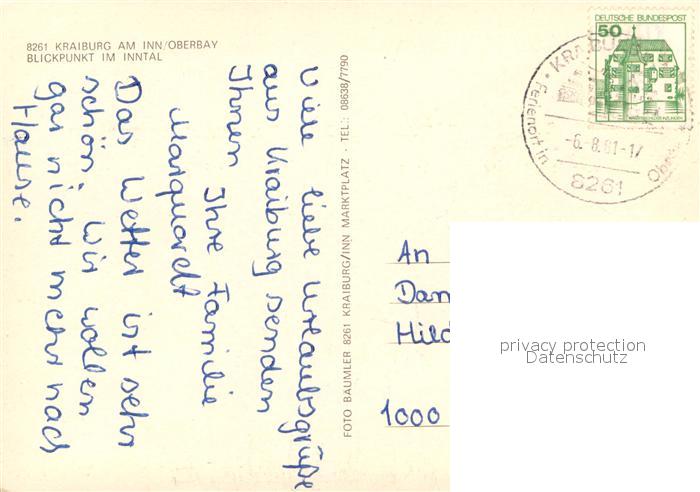 8261 KRAIBURG AM INN/OBERBAY
BLICKPUNKT IM INNTAL
Viele liebe Urlaubsgrüße
aus Kraiburg senden
Ihnen Ihre Familie
Marquardt
Das Wetter ist sehr
schön. Wir wollen
gar nicht mehr nach
Hause.
FOTO BAUMLER 8261 KRAIBURG/INN MARKTPLATZ · TEL.: 08638/7790
DEUTSCHE BUNDESPOST
50
Ferienort in
-6.-8.81-17
8261
An
Dam
Hild
1000
privacy protection
Datenschutz